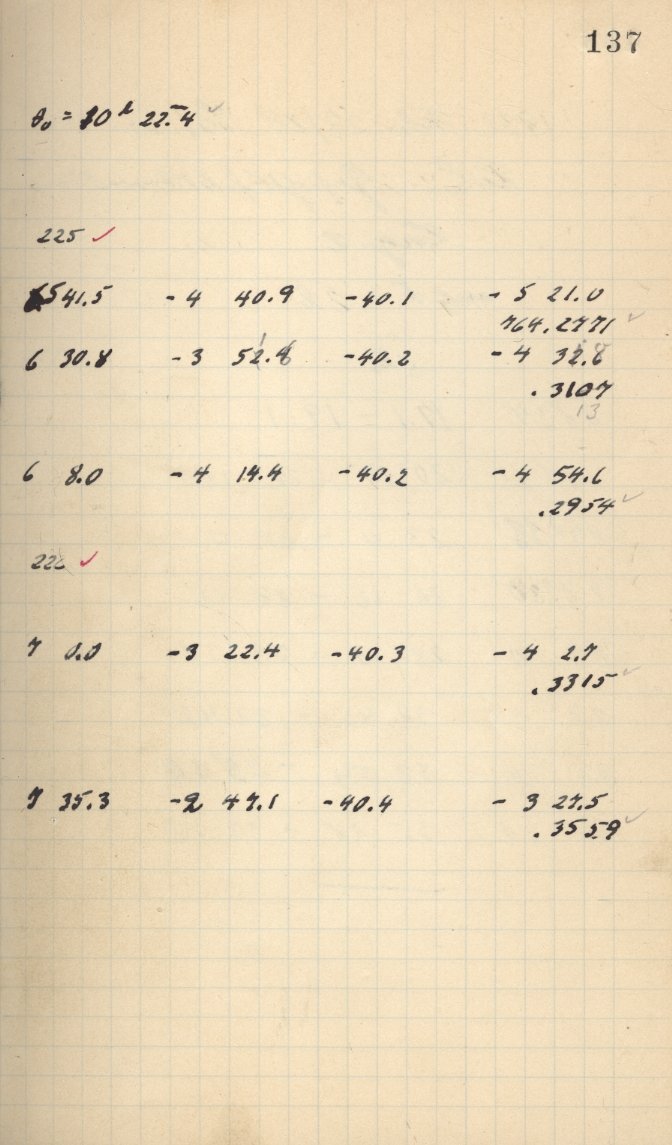 137
θ₀ = 10ʰ 22.4
225 ✓
5 41.5 -4 40.9 -40.1 -5 21.0
764.2771
6 30.8 -3 51.6 -40.2 -4 31.8
.3107
13
6 8.0 -4 14.4 -40.2 -4 54.6
.2954
226 ✓
7 0.0 -3 22.4 -40.3 -4 2.7
.3315
7 35.3 -2 47.1 -40.4 -3 27.5
.3559